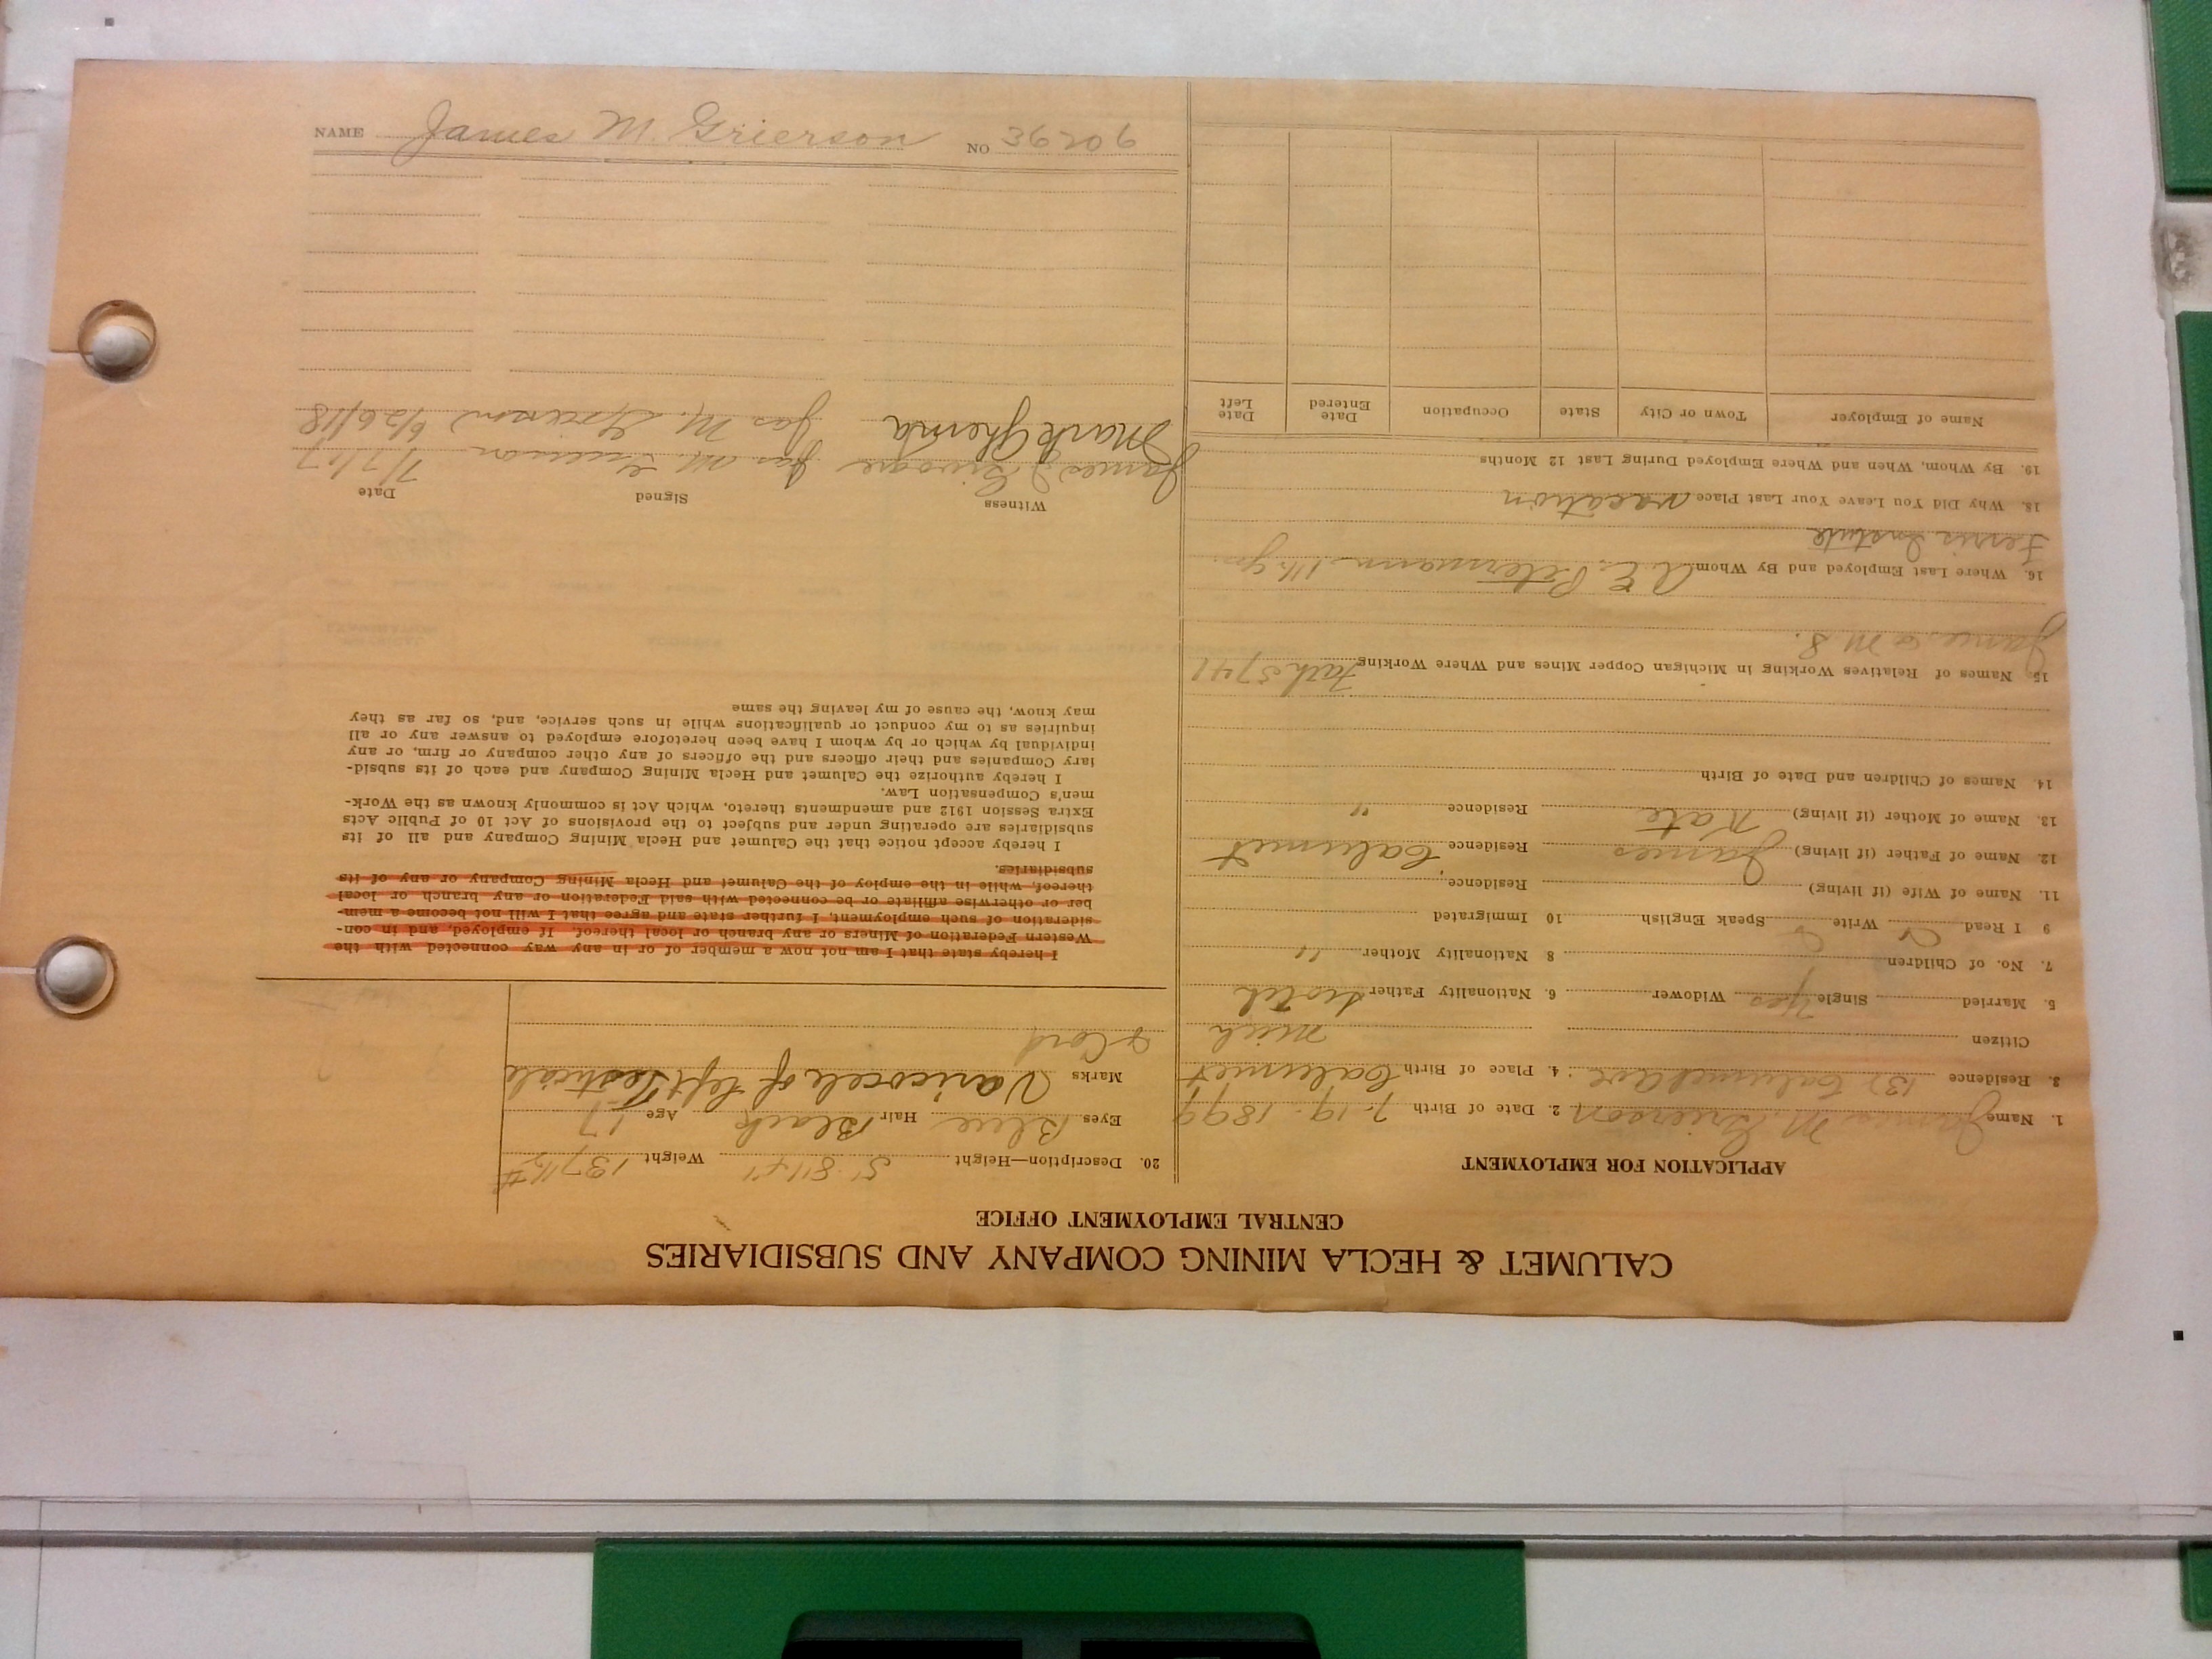 CALUMET & HECLA MINING COMPANY AND SUBSIDIARIES
CENTRAL EMPLOYMENT OFFICE
APPLICATION FOR EMPLOYMENT
1. Name James M. Grierson 2. Date of Birth 7-19-1899
3. Residence Calumet Ave 4. Place of Birth Calumet
Citizen Mich
5. Married Single Yes Widower 6. Nationality Father Scotch
7. No. of Children 8 Nationality Mother "
9 I Read Write Speak English 10 Immigrated
11. Name of Wife (if living) Residence
12. Name of Father (if living) James Residence Calumet
13. Name of Mother (if living) Kate Residence "
14. Names of Children and Date of Birth
15. Names of Relatives Working in Michigan Copper Mines and Where Working Fath 5741
James
16. Where Last Employed and By Whom A. E. Petermann
Ferris Institute
18. Why Did You Leave Your Last Place vacation
19. By Whom, When and Where Employed During Last 12 Months
Name of Employer Town or City State Occupation Date Entered Date Left
20. Description—Height Weight 137½#
Eyes Blue Hair Black Age 17
Marks Varicocele of left Testicle
& Cord
I hereby state that I am not now a member of or in any way connected with the
Western Federation of Miners or any branch or local thereof. If employed, and in con-
sideration of such employment, I further state and agree that I will not become a mem-
ber or otherwise affiliate or be connected with said Federation or any branch or local
thereof, while in the employ of the Calumet and Hecla Mining Company or any of its
subsidiaries.
I hereby accept notice that the Calumet and Hecla Mining Company and all of its
subsidiaries are operating under and subject to the provisions of Act 10 of Public Acts
Extra Session 1912 and amendments thereto, which Act is commonly known as the Work-
men's Compensation Law.
I hereby authorize the Calumet and Hecla Mining Company and each of its subsid-
iary Companies and their officers and the officers of any other company or firm, or any
individual by which or by whom I have been heretofore employed to answer any or all
inquiries as to my conduct or qualifications while in such service, and, so far as they
may know, the cause of my leaving the same
Witness Signed Date
James Jas. M. Grierson
Mark Jas M. Grierson 6/26/18
NAME James M. Grierson NO 36206